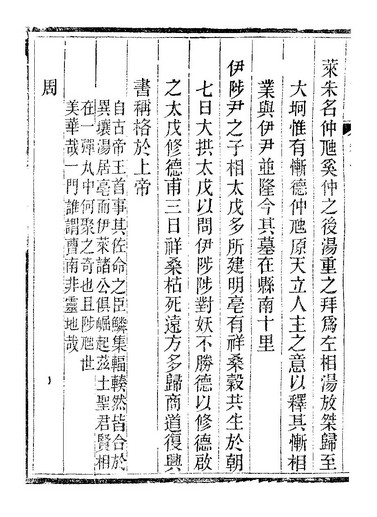 萊朱名仲虺奚仲之後湯重之拜爲左相湯放桀歸至
大坰惟有慚德仲虺原天立人主之意以釋其慚相
業與伊尹並隆今其墓在縣南十里
伊陟尹之子相太戊多所建明亳有祥桑穀共生於朝
七日大拱太戊以問伊陟陟對妖不勝德以修德啟
之太戊修德甫三日祥桑枯死遠方多歸商道復興
書稱格於上帝
自古帝王首事其佐命之臣鱗集輻輳然皆合於
異壤湯居亳而伊萊諸公俱崛起茲土聖君賢相
在一彈丸中何聚之奇也且陟虺世
美華哉一門誰謂曹南非靈地哉
周